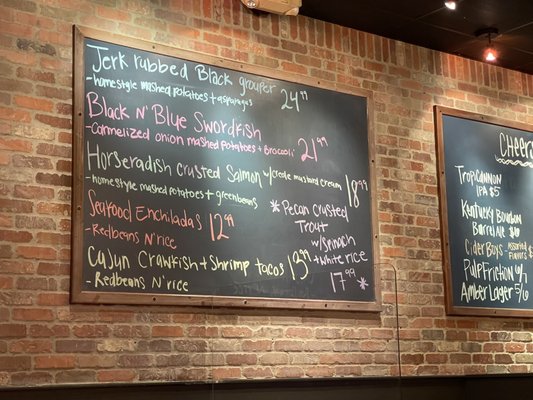 Jerk rubbed Black grouper
-homestyle mashed potatoes + asparagus 24.99
Black N' Blue Swordfish
-Carmelized onion mashed potatoes + Broccoli 21.99
Horseradish Crusted Salmon w/creole mustard cream
-homestyle mashed potatoes + greenbeans 18.99
Seafood Enchiladas 12.99
-Redbeans N' rice
Cajun Crawfish + Shrimp tacos 13.99
-Redbeans N' rice
* Pecan Crusted
Trout
w/Spinach
+ white rice
17.99 *
Cheers
Tropicannon
IPA $5
Kentucky Bourbon
Barrel Ale
Cider Boys Assorted
Flavors
Pulp Friction
Amber Lager